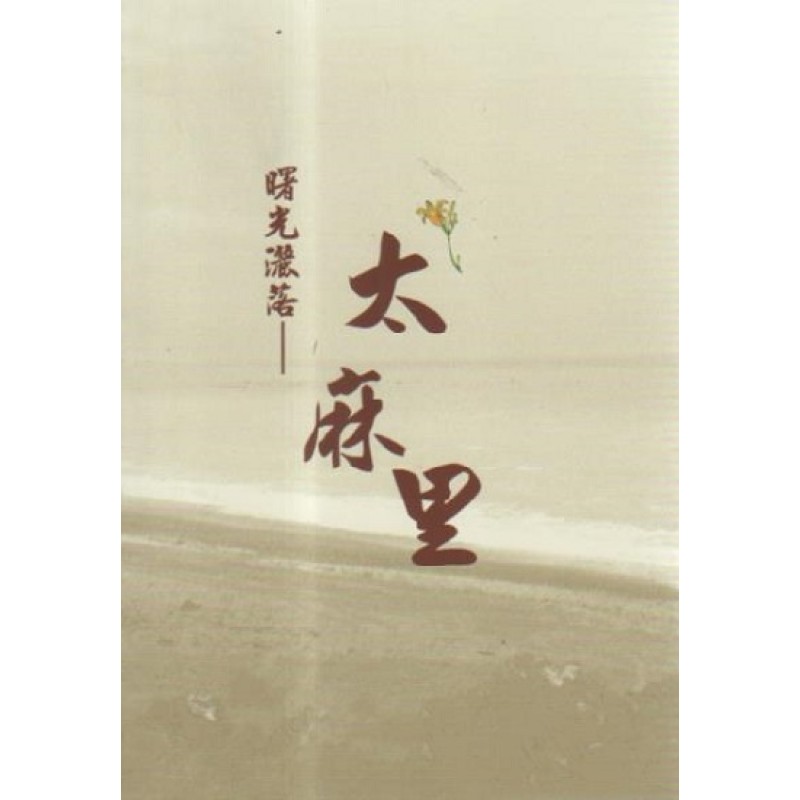 曙光灑落──
太麻里